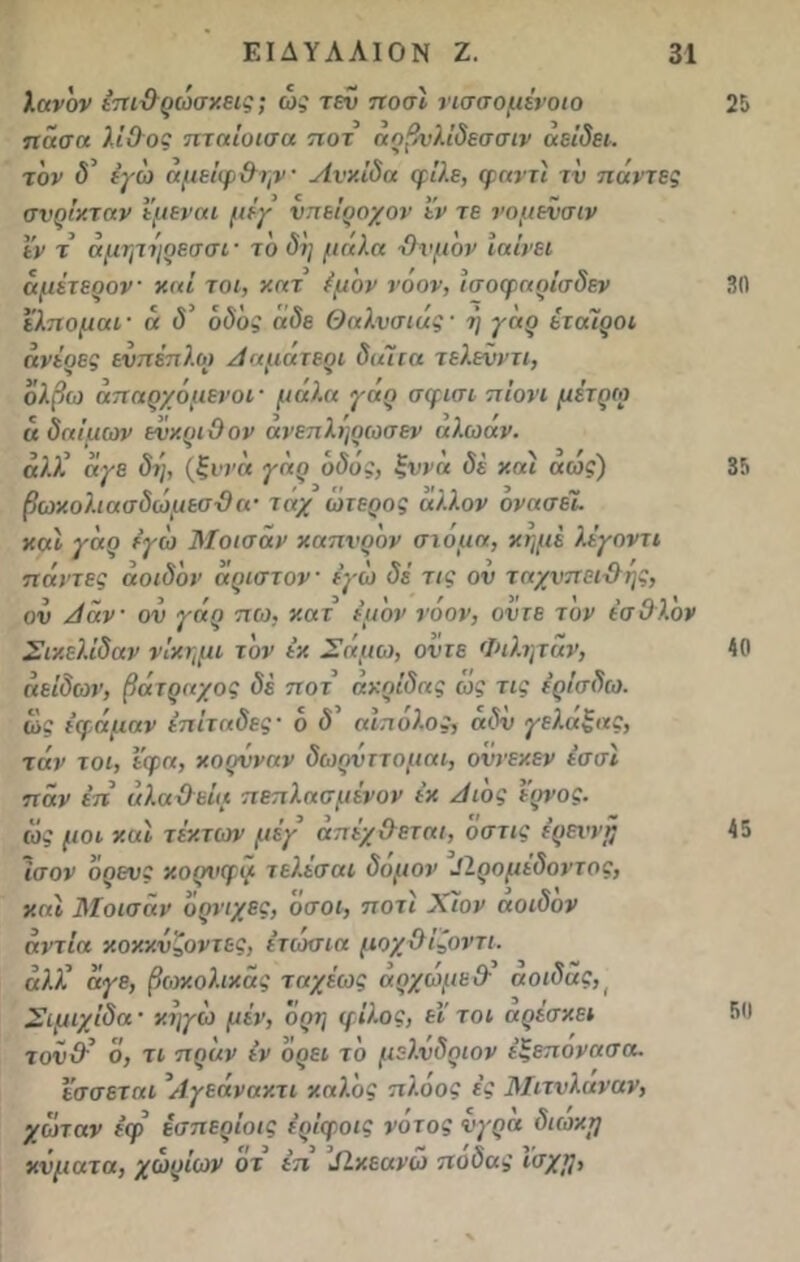 ΕΙΔΥΛΛΙΟΝ Ζ. 31
λανὸν ἐπιθρώσκεις; ὥς τεῦ ποσὶ νισσομένοιο 25
πᾶσα λίθος πταίοισα ποτ᾽ ἀρβυλίδεσσιν ἀείδει.
τὸν δ᾽ ἐγὼ ἀμείφθην· Λυκίδα φίλε, φαντὶ τὺ πάντες
συρίκταν ἔμεναι μέγ᾽ ὑπείροχον ἔν τε νομεῦσιν
ἔν τ᾽ ἀμητήρεσσι· τὸ δὴ μάλα θυμὸν ἰαίνει
ἁμέτερον· καί τοι, κατ᾽ ἐμὸν νόον, ἰσοφαρίσδεν 30
ἔλπομαι· ἁ δ᾽ ὁδὸς ἅδε Θαλυσιάς· ἦ γὰρ ἑταῖροι
ἀνέρες εὐπέπλῳ Δαμάτερι δαῖτα τελεῦντι,
ὄλβω ἀπαρχόμενοι· μάλα γάρ σφισι πίονι μέτρῳ
ἁ δαίμων εὔκριθον ἀνεπλήρωσεν ἀλωάν.
ἀλλ᾽ ἄγε δή, (ξυνὰ γὰρ ὁδός, ξυνὰ δὲ καὶ ἀώς) 35
βωκολιασδώμεσθα· τάχ᾽ ὥτερος ἄλλον ὀνασεῖ.
καὶ γὰρ ἐγὼ Μοισᾶν καπυρὸν στόμα, κἠμὲ λέγοντι
πάντες ἀοιδὸν ἄριστον· ἐγὼ δέ τις οὐ ταχυπειθής,
οὐ Δᾶν· οὐ γάρ πω, κατ᾽ ἐμὸν νόον, οὔτε τὸν ἐσθλὸν
Σικελίδαν νίκημι τὸν ἐκ Σάμω, οὔτε Φιλητᾶν, 40
ἀείδων, βάτραχος δὲ ποτ᾽ ἀκρίδας ὥς τις ἐρίσδω.
ὣς ἐφάμαν ἐπίταδες· ὁ δ᾽ αἰπόλος, ἁδὺ γελάξας,
τάν τοι, ἔφα, κορύναν δωρύττομαι, οὕνεκεν ἐσσὶ
πᾶν ἐπ᾽ ἀλαθείᾳ πεπλασμένον ἐκ Διὸς ἔρνος.
ὥς μοι καὶ τέκτων μέγ᾽ ἀπέχθεται, ὅστις ἐρευνῇ 45
ἶσον ὄρευς κορυφᾷ τελέσαι δόμον Ὠρομέδοντος,
καὶ Μοισᾶν ὄρνιχες, ὅσοι, ποτὶ Χῖον ἀοιδὸν
ἀντία κοκκύζοντες, ἐτώσια μοχθίζοντι.
ἀλλ᾽ ἄγε, βωκολικᾶς ταχέως ἀρχώμεθ᾽ ἀοιδᾶς,
Σιμιχίδα· κἠγὼ μέν, ὅρη φίλος, εἴ τοι ἀρέσκει 50
τοῦθ᾽ ὅ, τι πρὰν ἐν ὄρει τὸ μελύδριον ἐξεπόνασα.
ἔσσεται Ἀγεάνακτι καλὸς πλόος ἐς Μιτυλάναν,
χὤταν ἐφ᾽ ἑσπερίοις ἐρίφοις νότος ὑγρὰ διώκῃ
κύματα, χὠρίων ὅτ᾽ ἐπ᾽ Ὠκεανῶ πόδας ἴσχῃ,